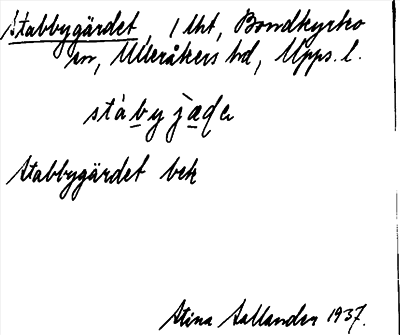 Stabbygärdet, 1 lht, Bondkyrko
sn, Ulleråkers hd, Upps. l.
stábyjäda
Stabbygärdet bek
Stina Sallander 1937.